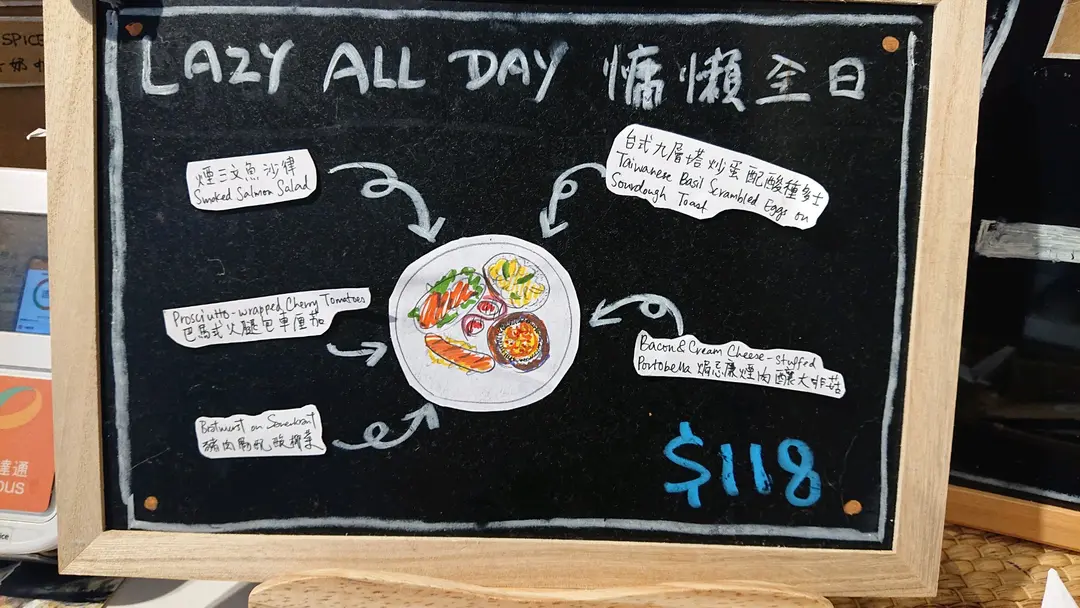 LAZY ALL DAY 慵懶全日
煙三文魚沙律
Smoked Salmon Salad
台式九層塔炒蛋配酸種多士
Taiwanese Basil Scrambled Eggs on
Sourdough Toast
Prosciutto-wrapped Cherry Tomatoes
巴馬式火腿包車厘茄
Bacon & Cream Cheese-stuffed
Portobella 焗忌廉煙肉釀大啡菇
Bratwurst on Sauerkraut
豬肉腸配酸椰菜
$118
SPICE
達通
pus